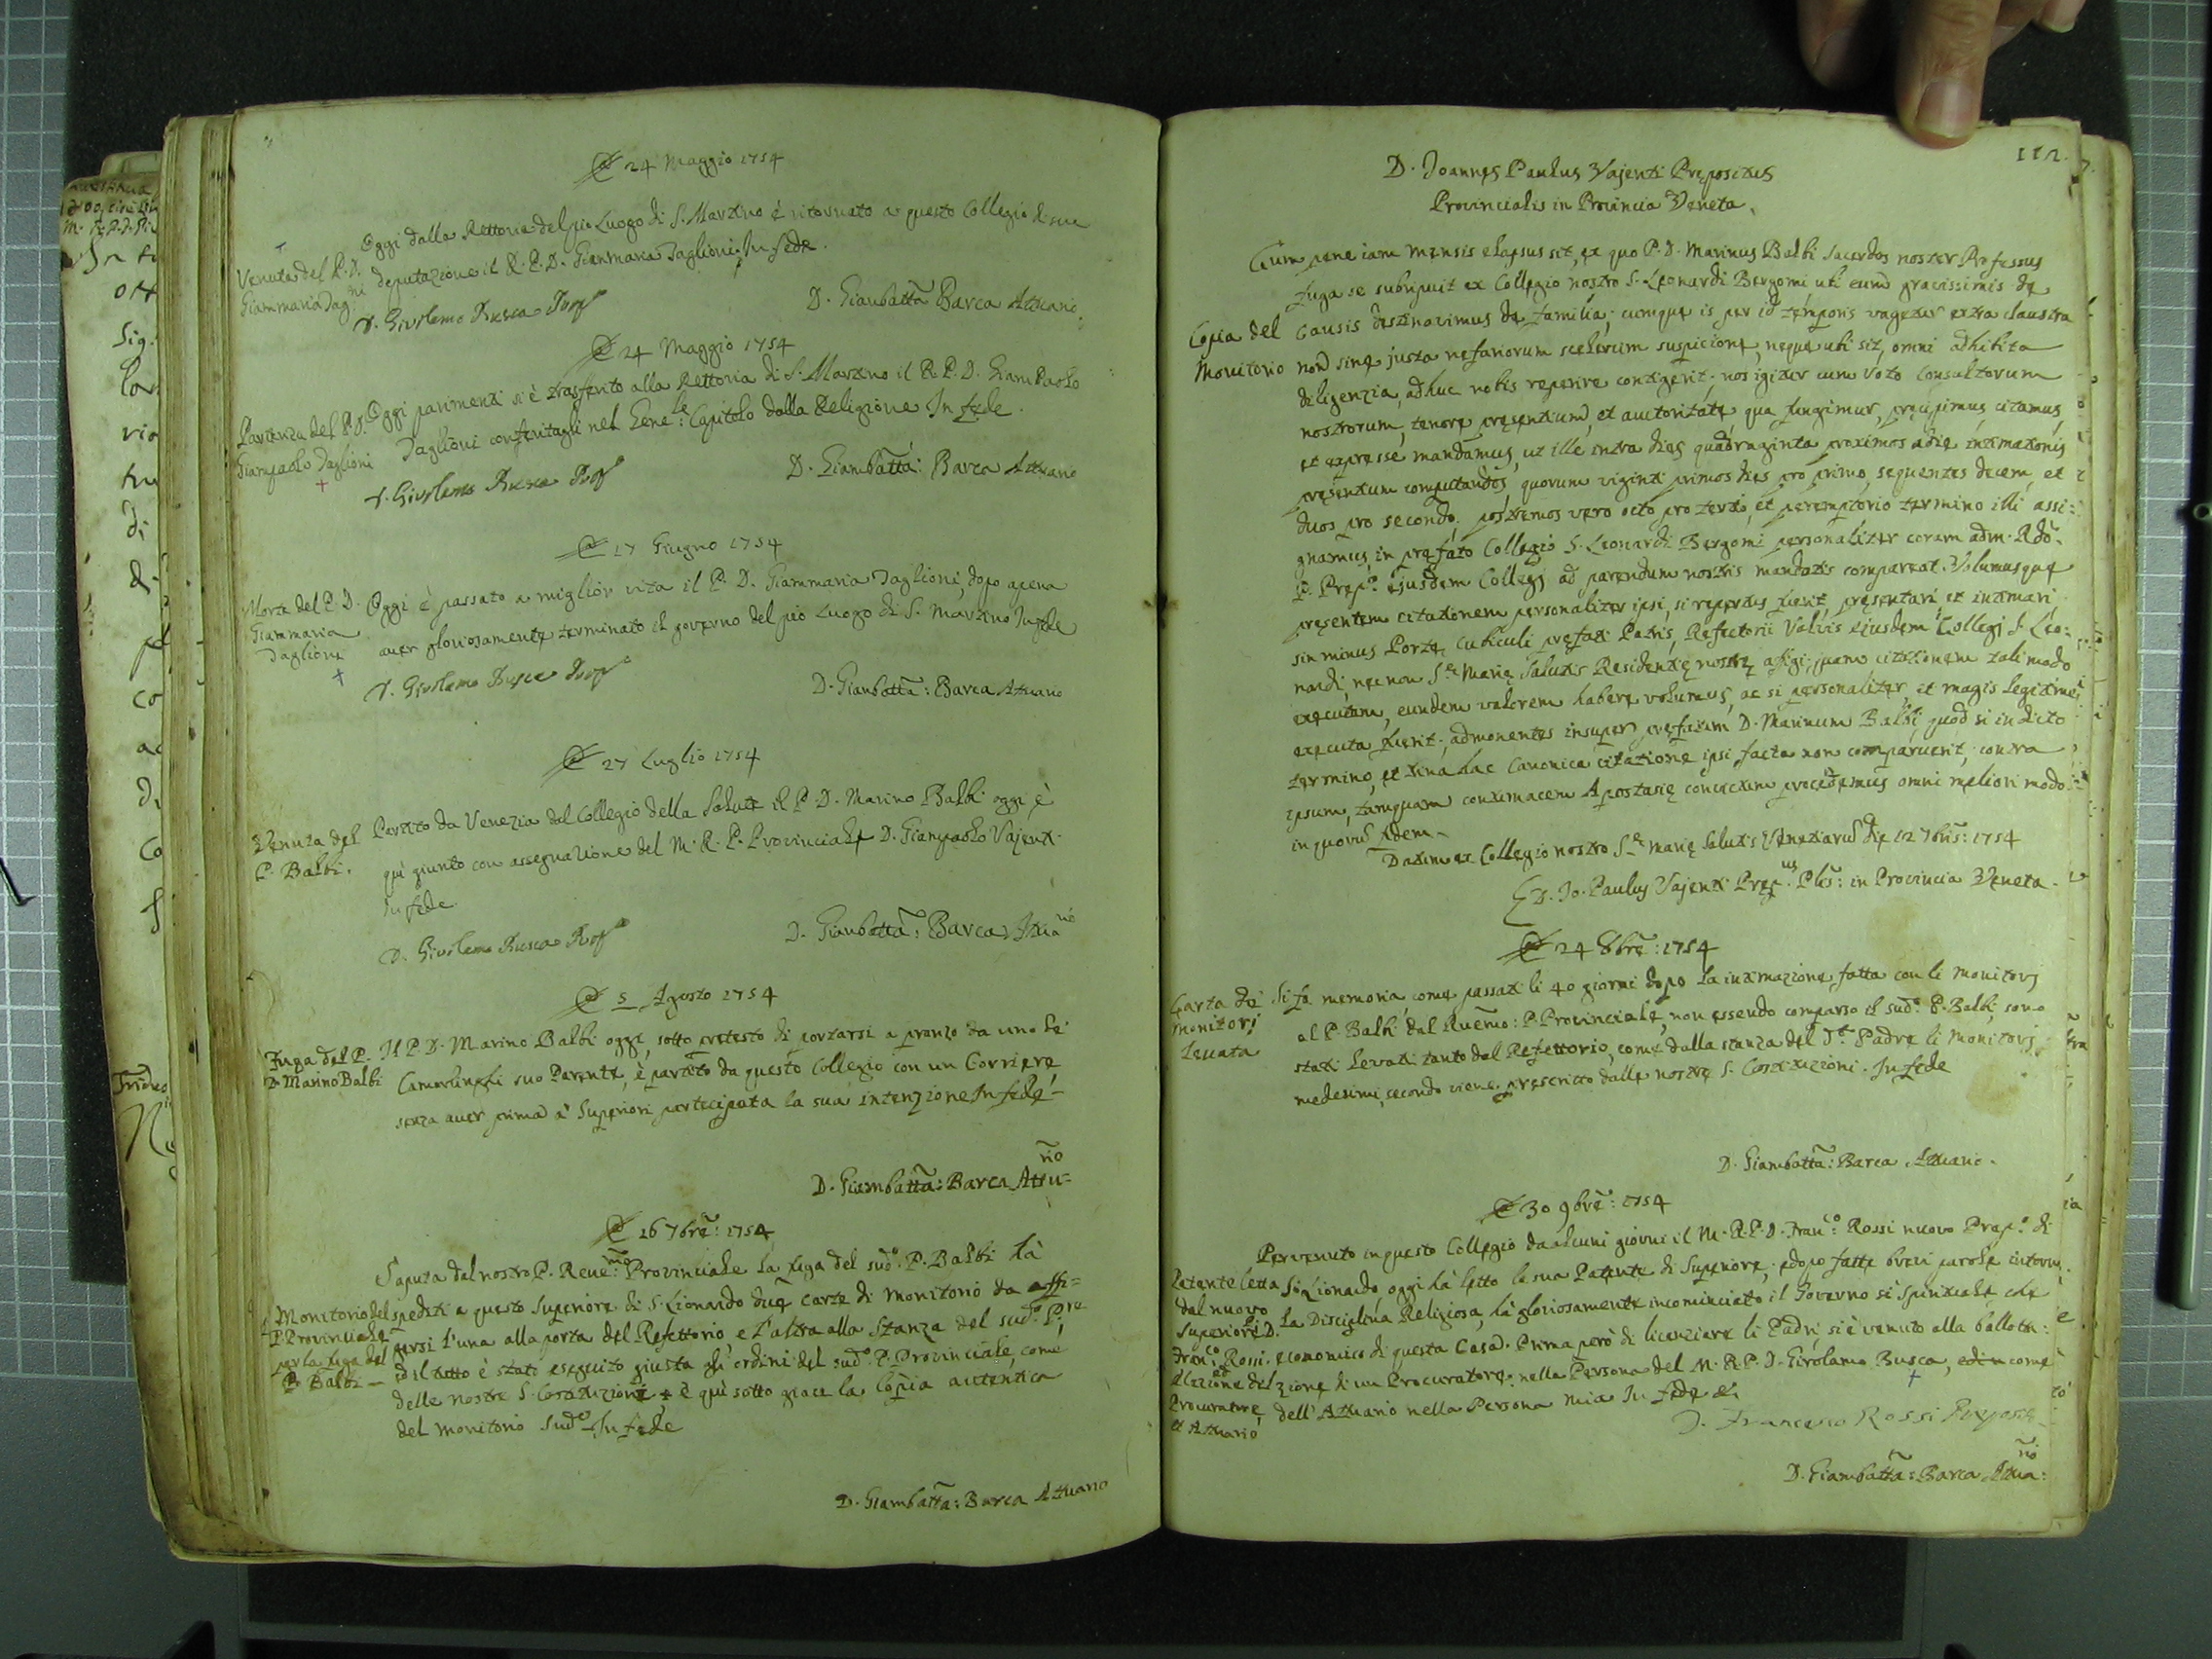 24 Maggio 1754
Oggi dalla Rettoria del pio Luogo di S. Martino è ritornato a questo Collegio di sua
Venuta del P. D.
Giammaria Tag.ni
deputazione il R. P. D. Giammaria Taglioni; In fede.
D. Girolamo Rusca
D. Giambatta Barca Attuario
24 Maggio 1754
Partenza del P. D.
Giampaolo Taglioni
Oggi parimenti si è trasferito alla Rettoria di S. Martino il R. P. D. Giam Paolo
Taglioni conferitagli nel Gene:le Capitolo dalla Religione In fede.
D. Girolamo Rusca
D. Giambatta: Barca Attuario
17 Giugno 1754
Morte del P. D.
Giammaria
Taglioni
Oggi è passato a miglior vita il P. D. Giammaria Taglioni, dopo apena
aver gloriosamente terminato il governo del pio Luogo di S. Martino In fede
D. Girolamo Rusca
D. Giambatta: Barca Attuario
27 Luglio 1754
Venuta del
P. Balbi.
Partito da Venezia dal Collegio della Salute il P. D. Marino Balbi oggi è
quì giunto con assegnazione del M. R. P. Provinciale D. Giampaolo Vajenti.
In fede
D. Girolamo Rusca
D. Giambatta: Barca Attuario
5 Agosto 1754
Fuga del P.
D. Marino Balbi
Il P. D. Marino Balbi oggi, sotto pretesto di portarsi a pranzo da uno de'
Camerlinghi suo Parente, è partito da questo Collegio con un Corriere
senza aver prima a' Superiori partecipata la sua intenzione In fede
D. Giambatta: Barca Attu=rio
16 7bre: 1754
Saputa dal nostro P. Reve:mo Provinciale la fuga del sud.o P. Balbi hà
Monitorio del
P. Provinciale
per la fuga del
P. Balbi
spediti a questo Superiore di S. Lionardo due carte di monitorio da affi=
gersi l'una alla porta del Refettorio e l'altra alla Stanza del sud.o P.re,
ed il tutto è stato eseguito giusta gli ordini del sud.o P. Provinciale, come
delle nostre S. Costituzioni e quì sotto giace la Copia autentica
del monitorio sud.o In fede
D. Giambatta: Barca Attuario
112.
D. Joannes Paulus Vajenti Prepositus
Provincialis in Provincia Veneta.
Cum pene iam mensis elapsus sit, ex quo P. D. Marinus Balbi Sacerdos noster Professus
fuga se subripuit ex Collegio nostro S. Leonardi Bergomi ubi eum gravissimis de
Copia del
Monitorio
causis destinavimus de familia; cumque is per id temporis vagetur extra claustra
non sine justa nefariorum scelerum suspicione, neque ubi sit, omni adhibita
diligenzia, adhuc nobis reperire contigerit; nos igitur cum voto Consultorum
nostrorum, tenore presentium, et auctoritate, qua fungimur, precipimus, citamus,
et expresse mandamus, ut ille intra dies quadraginta proximos a die intimationis
presentium computandos, quorum viginti primos dies pro primo, sequentes decem et
duos pro secondo, postremos vero octo pro tertio, et peremptorio termino illi assi:
gnamus, in prefato Collegio S. Leonardi Bergomi personaliter coram adm. Rdo.
P. Prep.o ejusdem Collegj ad parendum nostris mandatis compareat. Volumusque
presentem citationem personaliter ipsi, si repertus fuerit, presentari et intimari
sin minus Porte cubiculi prefati Patris, Refectorii Valvis ejusdem Collegj S. Leo:
nardi, nec non S.te Marie Salutis Residentie nostre affigi, quam citationem tali modo
executam, eundem valorem habere volumus, ac si personaliter et magis legitime
executa fuerit; admonentes insuper prefatum D. Marinum Balbi quod si in dicto
termino, et trina hac Canonica citatione ipsi facta non comparuerit, contra
ipsum, tamquam contumacem Apostasie convictum procedemus omni meliori modo
in quorum fidem
Datum ex Collegio nostro S.te Marie Salutis Venetiarum die 12 7bris: 1754
D. Jo. Paulus Vajenti Prep.us Plis: in Provincia Veneta.
24 8bre: 1754
Carta de'
monitorj
Levata
Si fa memoria come passati li 40 giorni dopo la intimazione fatta con li monitorj
al P. Balbi dal Ruemo: P. Provinciale, non essendo comparso il sud.o P. Balbi, sono
stati levati tanto dal Refettorio, come dalla stanza del Padre li monitorj
medesimi, secondo viene prescritto dalle nostre S. Costituzioni. In fede
D. Giambatta: Barca Attuario.
30 9bre: 1754
Pervenuto in questo Collegio da alcuni giorni il M. R. P. D. Fran:co Rossi nuovo Prep.o di
Patente letta
dal nuovo
Superiore D.
Fran:co Rossi.
Elezione del
Procuratore,
et Attuario
S. Lionardo, oggi hà letto la sua Patente di Superiore; e dopo fatte brevi parole intorno
la Disciplina Religiosa, hà gloriosamente incominciato il Governo sì Spirituale che
economico di questa Casa. Prima però di licenziare li Padri si è venuto alla ballotta:
zione di un Procuratore nella Persona del M. R. P. D. Girolamo Rusca, come
dell'Attuario nella Persona mia In fede
D. Francesco Rossi Preposto
D. Giambatta: Barca Attua:rio